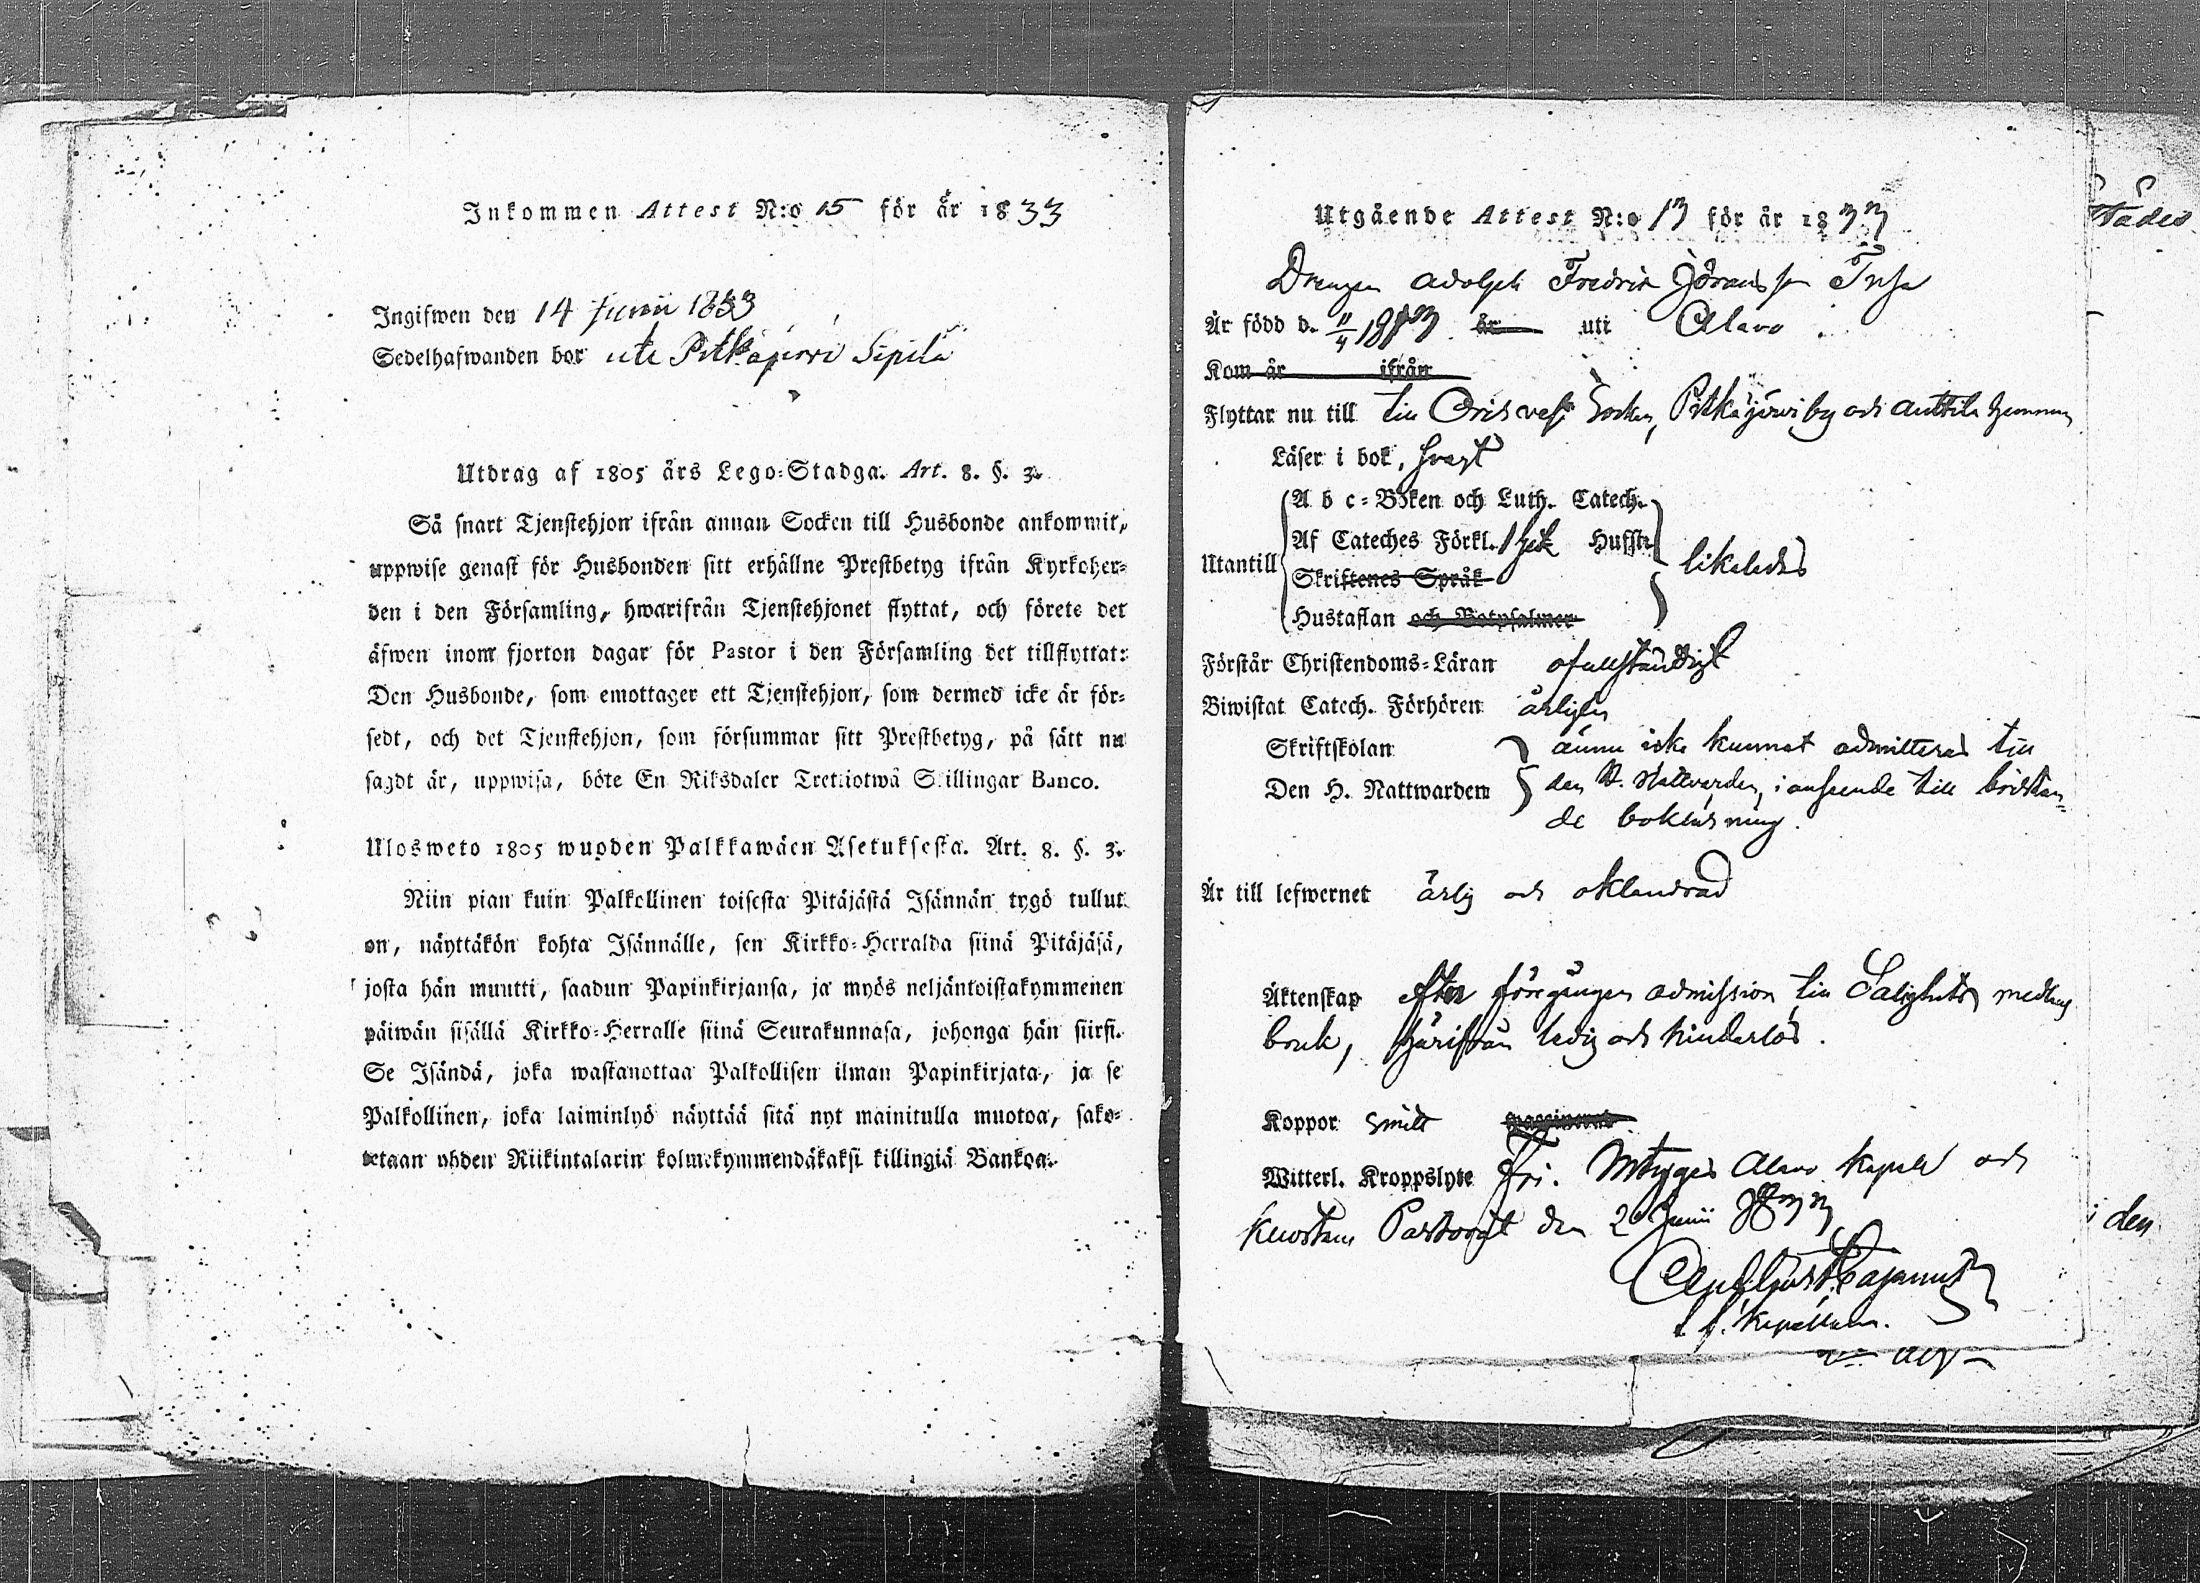 Inkommen Attest N:o 15 för år 1833
Ingifwen den 14 Junii 1833
Sedelhafwanden bor uti Pitkäjärvi Sipilä
Utdrag af 1805 års Lego-Stadga. Art. 8. §. 3.
Så snart Tjenstehjon ifrån annan Socken till Husbonde ankommit,
uppwise genast för Husbonden sitt erhållne Prestbetyg ifrån Kyrkoher-
den i den Församling, hwarifrån Tjenstehjonet flyttat, och förete det
äfwen inom fjorton dagar för Pastor i den Församling det tillflyttat:
Den Husbonde, som emottager ett Tjenstehjon, som dermed icke är för-
sedt, och det Tjenstehjon, som försummar sitt Prestbetyg, på sätt nu
sagdt är, uppwisa, böte En Riksdaler Trettiotwå Skillingar Banco.
Ulosweto 1805 wuoden Palkkawäen Asetuksesta. Art. 8. §. 3.
Niin pian kuin Palkollinen toisesta Pitäjästä Isännän tygö tullut
on, näyttäkön kohta Isännälle, sen Kirkko-Herralda siinä Pitäjäsä,
josta hän muutti, saadun Papinkirjansa, ja myös neljäntoistakymmenen
päiwän sisällä Kirkko-Herralle siinä Seurakunnasa, johonga hän siirsi.
Se Isändä, joka wastanottaa Palkollisen ilman Papinkirjata, ja se
Palkollinen, joka laiminlyö näyttää sitä nyt mainitulla muotoa, sako-
tetaan yhden Riikintalarin kolmekymmendäkaksi killingiä Bankoa.
Utgående Attest N:o 13 för år 1833
Drengen Adolph Fredric Jöransson
Är född d. 11/4 år uti Alavo
Kom år ifrån
Flyttar nu till till Orisvesi Socken, Pitkäjärvi by och Anttila hemman
Läser i bok, svagt
Utantill
A b c-Boken och Luth. Catech.
Af Cateches Förkl. Hufst.
Skriftenes Språk
Hustaflan och Botpsalmer
likaledes
Förstår Christendoms-Läran ofullständigt
Biwistat Catech. Förhören årligen
Skriftskolan ännu icke kunnat admitteras till
Den H. Nattwarden den H. Nattvarden, i anseende till bristan-
de bokläsning.
Är till lefwernet ärlig och oklandrad
Äktenskap efter förgången admission till Salighets medlens
bruk, härifrån ledig och hinderlös.
Koppor Smitt
Witterl. Kroppslyte Fri. Intygas Alavo Kapell och
Kuortane Pastorat den 2 Junii 1833
Cajanus
Kapellan.
stades
i den